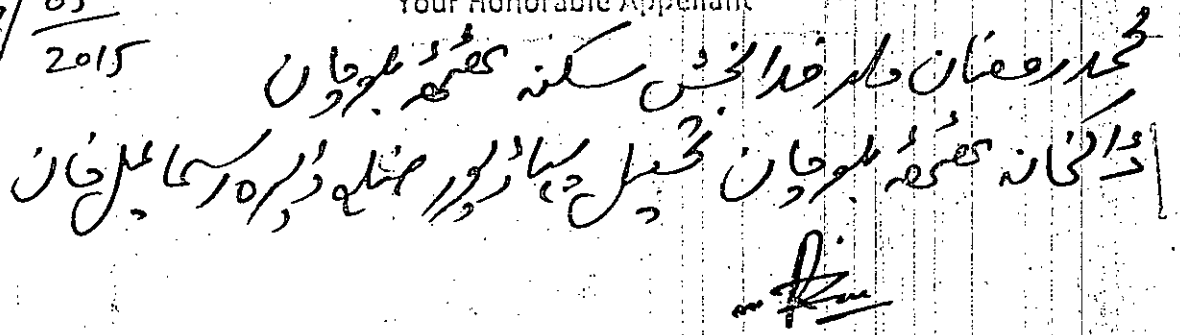 Your Honorable Appellant
03
2015
محمد رمضان ولد خدا بخش سکنہ ٹھٹھہ بلوچان
ڈاکخانہ ٹھٹھہ بلوچان تحصیل پہاڑپور ضلع ڈیرہ اسماعیل خان